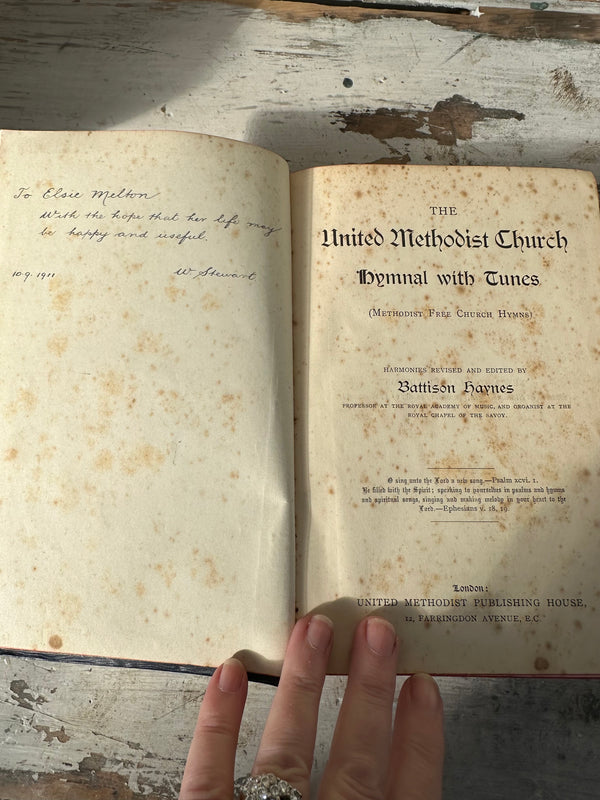 To Elsie Melton
With the hope that her life may
be happy and useful.
10.9.1911 W Stewart
THE
United Methodist Church
Hymnal with Tunes
(METHODIST FREE CHURCH HYMNS)
HARMONIES REVISED AND EDITED BY
Battison Haynes
PROFESSOR AT THE ROYAL ACADEMY OF MUSIC, AND ORGANIST AT THE
ROYAL CHAPEL OF THE SAVOY.
O sing unto the Lord a new song.—Psalm xcvi. 1.
Be filled with the Spirit; speaking to yourselves in psalms and hymns
and spiritual songs, singing and making melody in your heart to the
Lord.—Ephesians v. 18, 19.
London:
UNITED METHODIST PUBLISHING HOUSE,
12, FARRINGDON AVENUE, E.C.